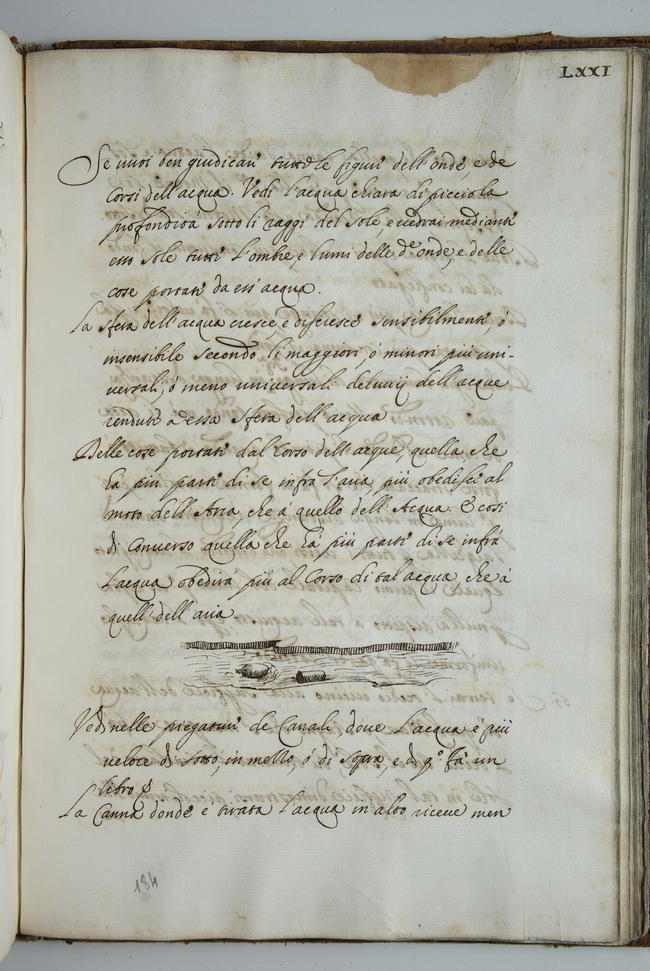 LXXI
Se vuoi ben giudicari tutte le figuri dell'onde, e de
Corsi dell'acqua. Vedi l'acqua chiara di picciola
profondità sotto li raggi del Sole, e vedrai medianti
esso Sole tutti l'ombre, e lumi delle d.e onde, e delle
cose portati da essi acqua.
La sfera dell'acqua cresce, e discresce sensibilmenti ò
insensibile secondo li maggiori, ò minori più uni-
versali, ò meno universali deluvij dell'acque
renduti ad essa Sfera dell'acqua
Delle cose portati dal Corso dell'acque, quella che
hà più parti di se infrà l'aria, più obedisci al
moto dell'Aria, che à quello dell'Acqua. E così
di Converso quella che hà più parti di se infrà
l'acqua obedirà più al Corso di tal acqua, che à
quell'dell'aria
Vedi nelle piegaturi de Canali doue l'acqua è più
veloce di sotto, in mezzo, ò di sopra, e di q.o fà un
libro
La Canna donde è tirata l'acqua in alto riceve men
184